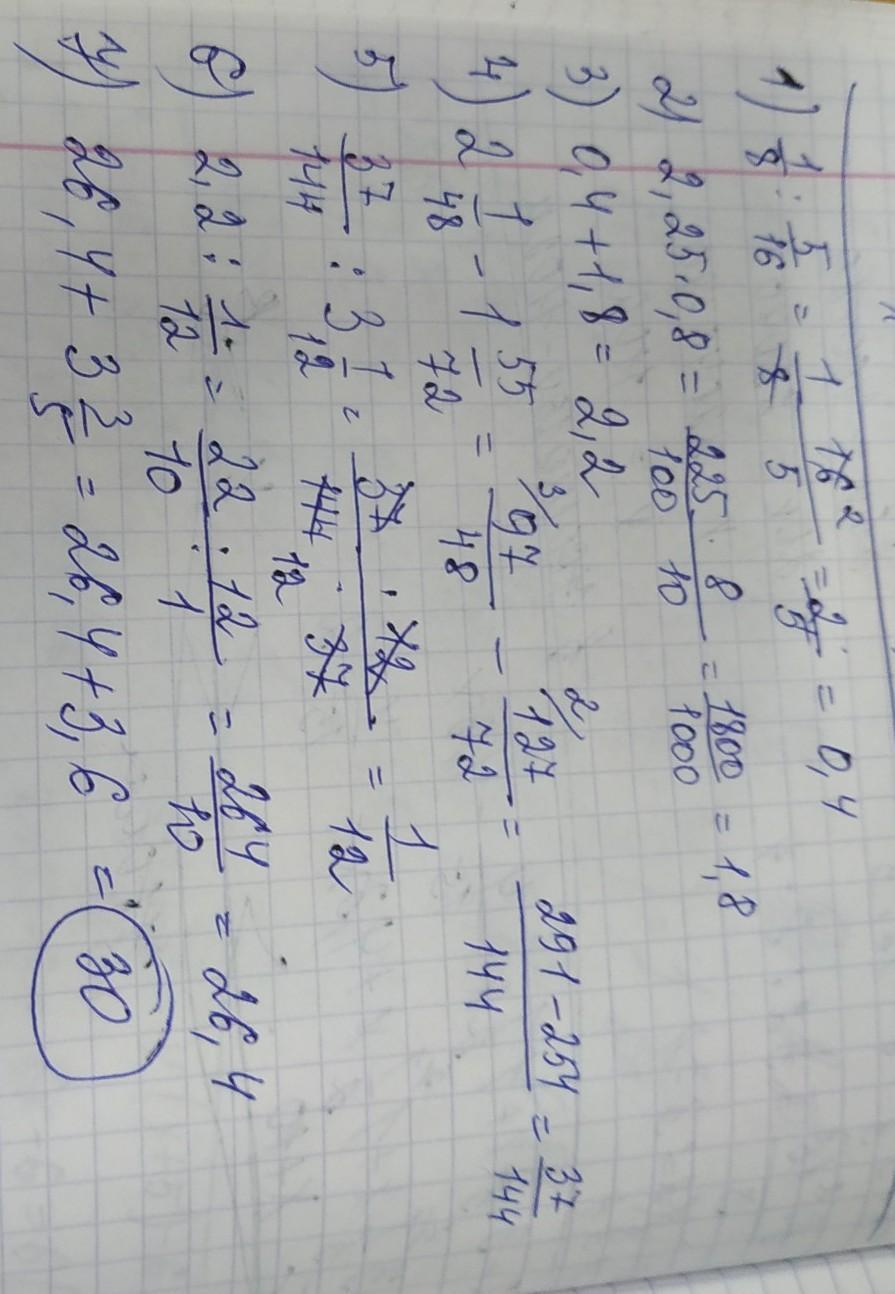 1) 1/8 : 5/16 = 1 16 2 / 8 5 = 2/5 = 0,4
2) 2,25 · 0,8 = 225 · 8 / 100 10 = 1800/1000 = 1,8
3) 0,4 + 1,8 = 2,2
4) 2 1/48 - 1 55/72 = 3/ 97/48 - 2/ 127/72 = 291 - 254 / 144 = 37/144
5) 37/144 : 3 1/12 = 37 · 12 / 144 · 37 12 = 1/12
6) 2,2 : 1/12 = 22 · 12 / 10 · 1 = 264/10 = 26,4
7) 26,4 + 3 3/5 = 26,4 + 3,6 = 30